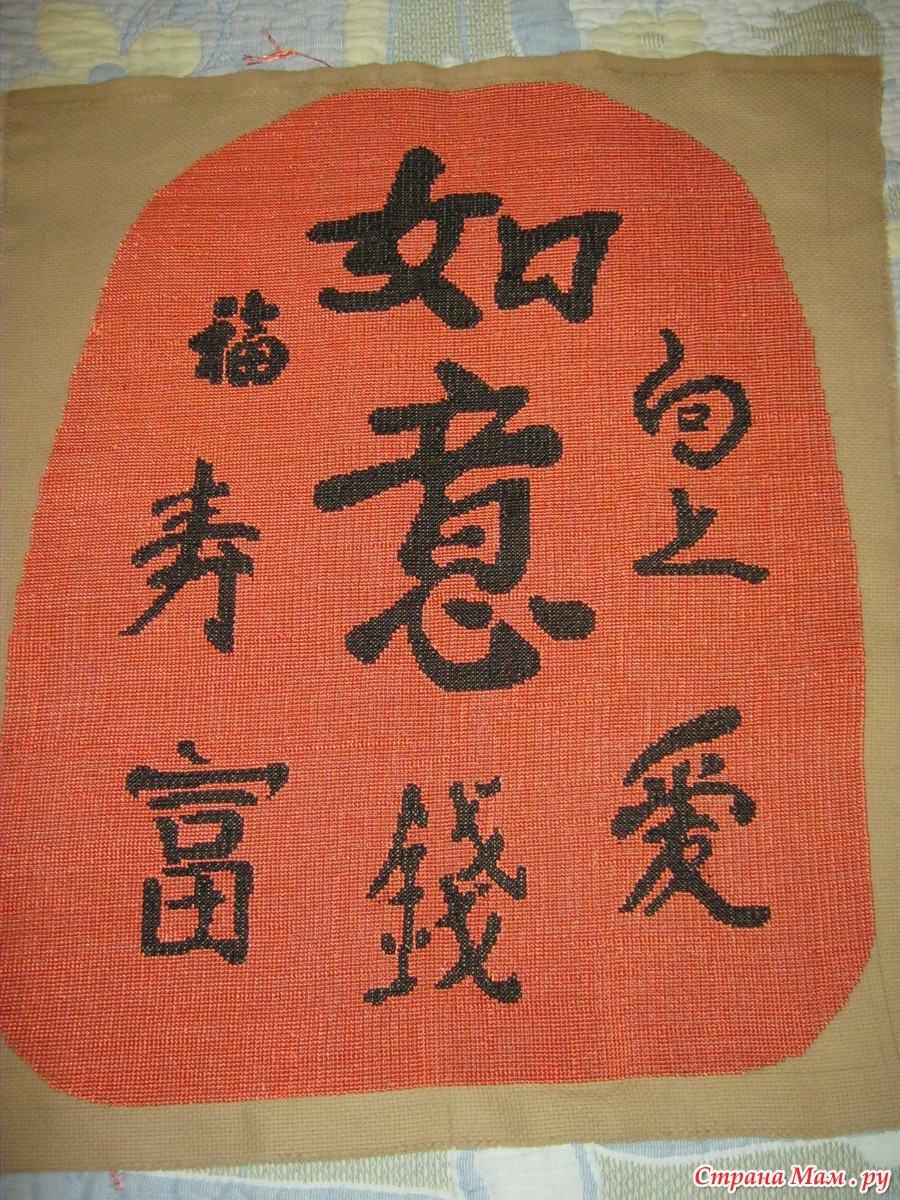 如意
向上
愛
福
寿
富
錢
Страна Мам .ру